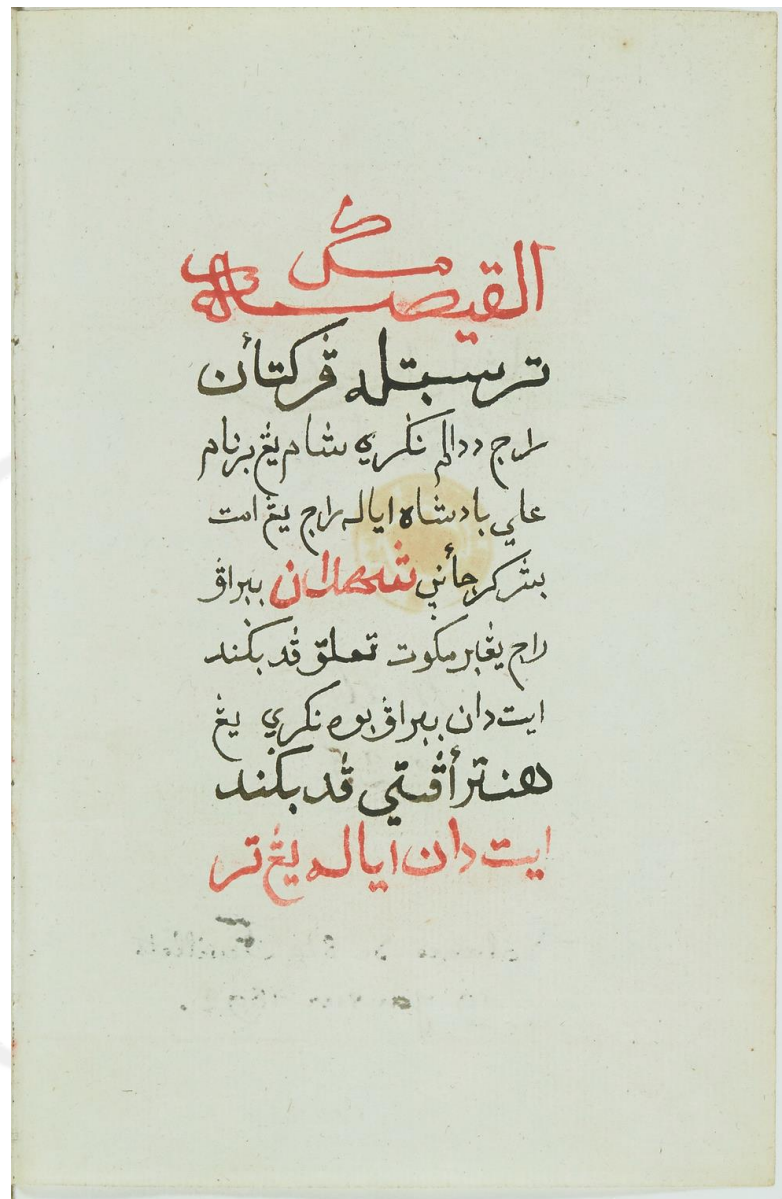 القيصه مك
ترسبتله ڤركتأن
راج ددالم نكري شام يڠ برنام
علي بادشاه اياله راج يڠ امت
بسر كرجأني شهدان ببراڤ
راج يڠ برمكوت تعلق ڤد بكند
ايت دان ببراڤ بوه نكري يڠ
هنتر أڤتي ڤد بكند
ايت دان اياله يڠ تر